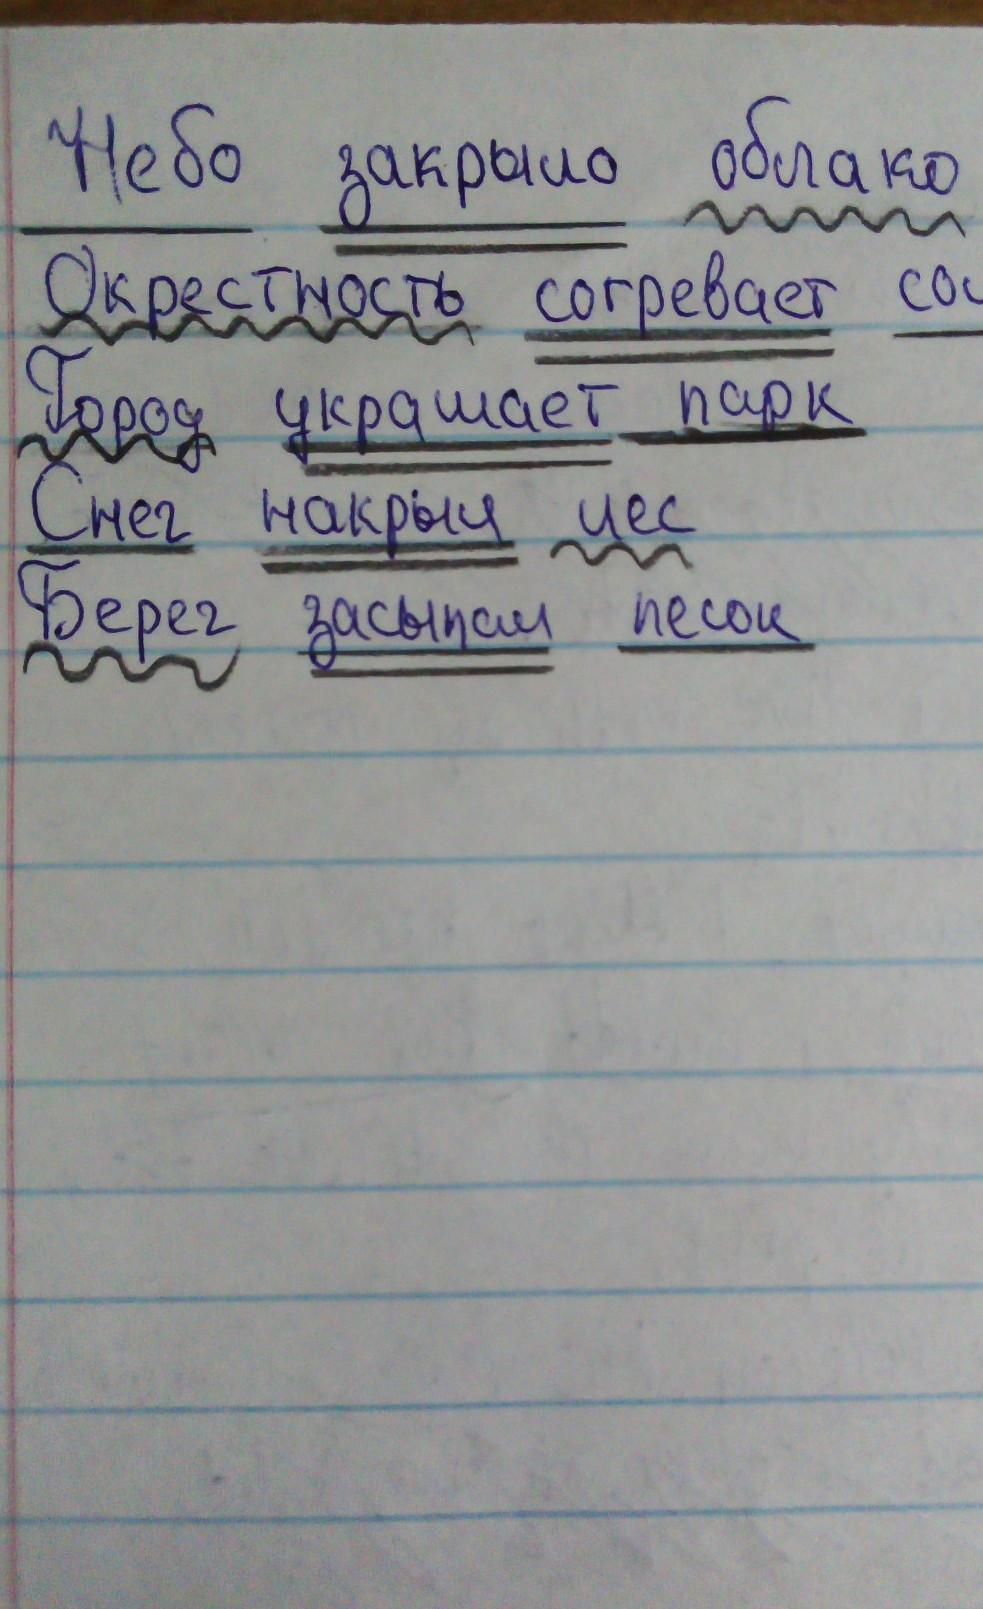 Небо закрыло облако
Окрестность согревает
Город украшает парк
Снег накрыл лес
Берег засыпал песок